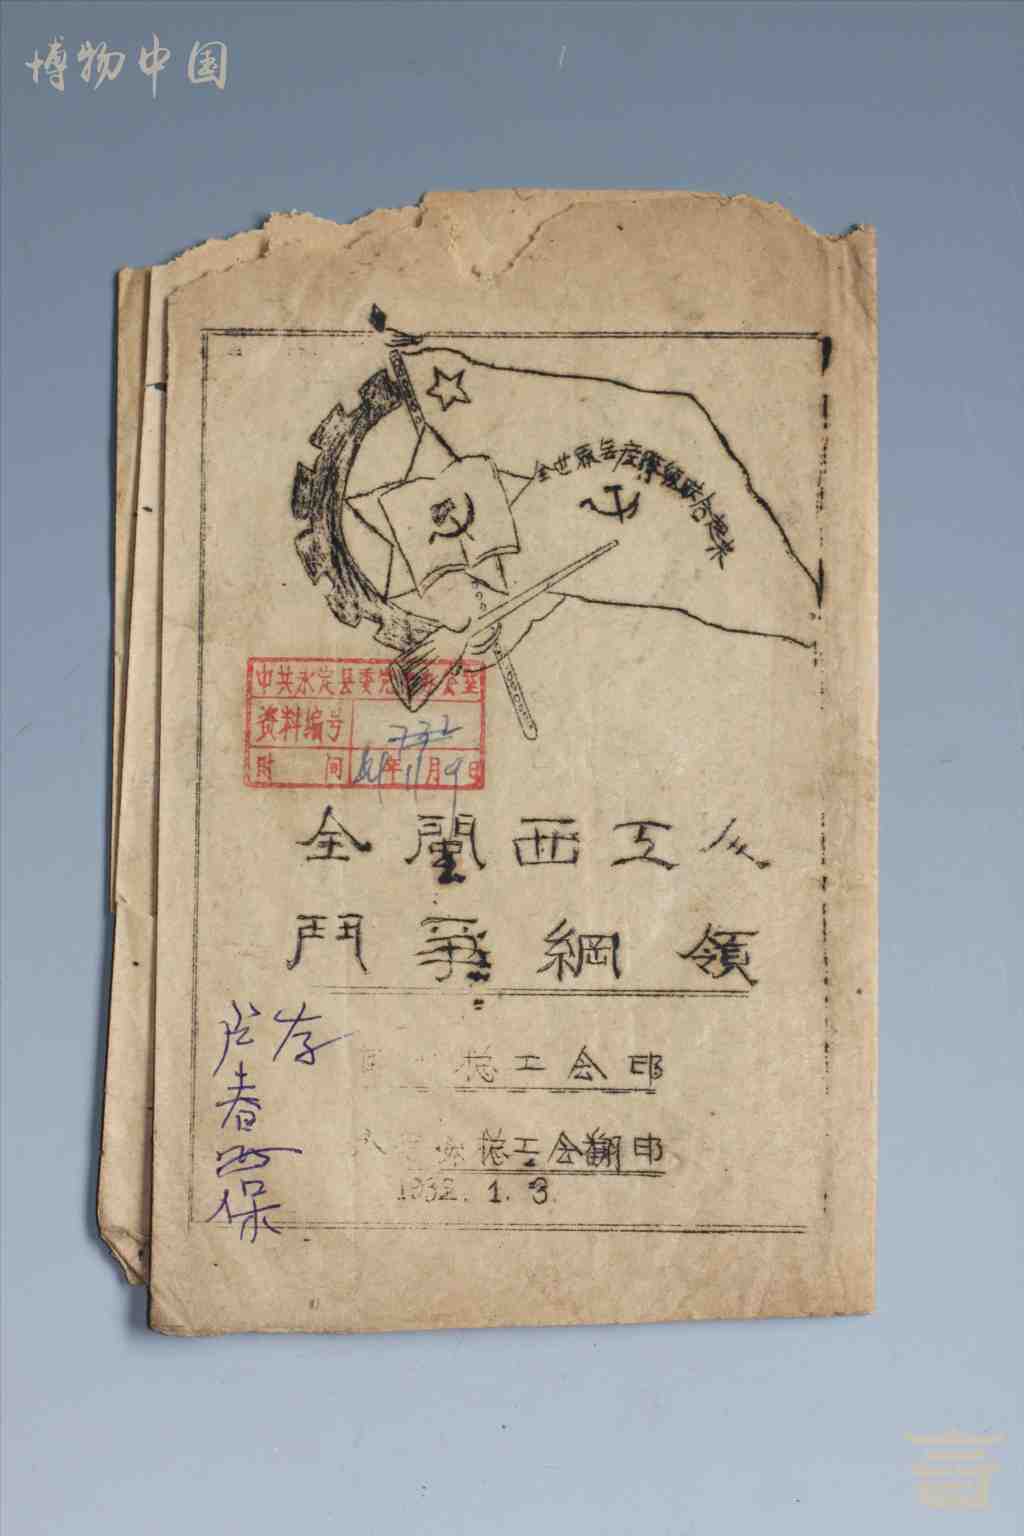 博物中国
全世界无产阶级联合起来
中共永定县委党史办公室
资料编号 732
时间 84年11月9日
全閩西工人
鬥爭綱領
总工会印
总工会翻印
1932.1.3.
存
春
保